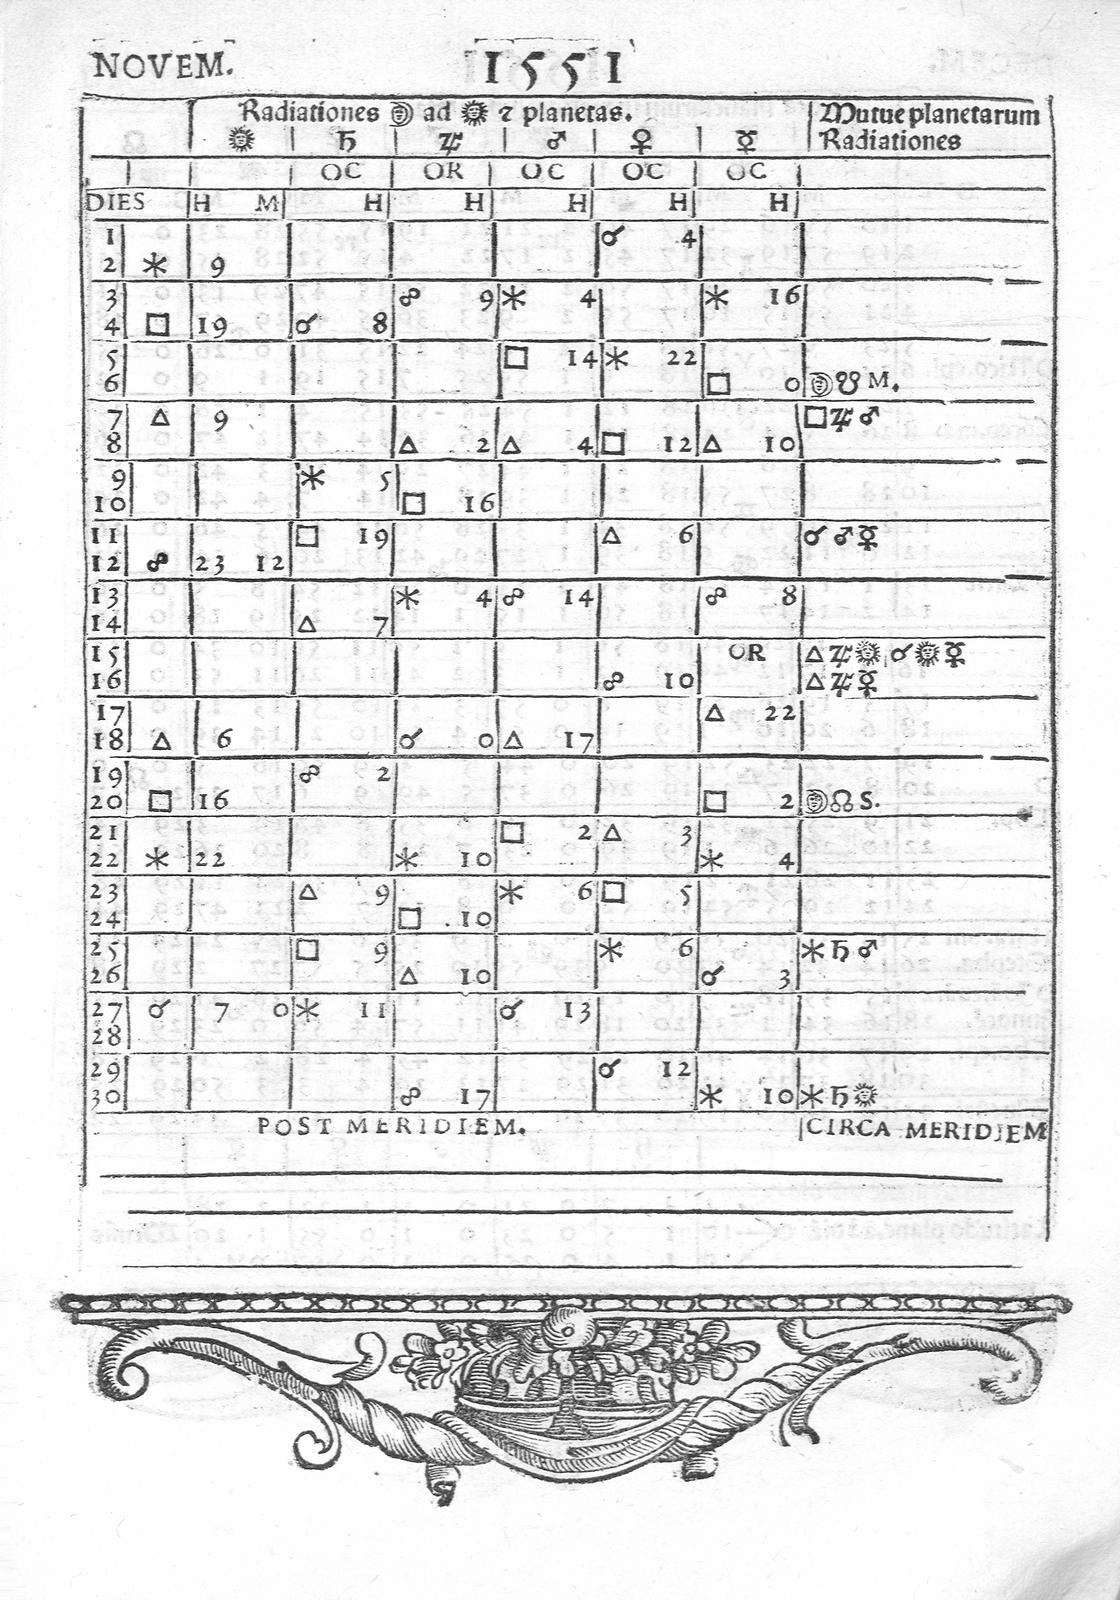 NOVEM. 1551
Radiationes ☽ ad ☉ ⁊ planetas. Mutue planetarum
☉ ♄ ♃ ♂ ♀ ☿ Radiationes
OC OR OC OC OC
DIES H M H H H H H
1 ☌ 4
2 ⚹ 9
3 ☍ 9 ⚹ 4 ⚹ 16
4 □ 19 ☌ 8
5 □ 14 ⚹ 22
6 □ 0 ☽ ☋ M.
7 △ 9 □ ♃ ♂
8 △ 2 △ 4 □ 12 △ 10
9 ⚹ 5
10 □ 16
11 □ 19 △ 6 ☌ ♂ ☿
12 ☍ 23 12
13 ⚹ 4 ☍ 14 ☍ 8
14 △ 7
15 OR △ ♃ ☉ ☌ ☉ ☿
16 ☍ 10 △ ♃ ☿
17 △ 22
18 △ 6 ☌ 0 △ 17
19 ☍ 2
20 □ 16 □ 2 ☽ ☊ S.
21 □ 2 △ 3
22 ⚹ 22 ⚹ 10 ⚹ 4
23 △ 9 ⚹ 6 □ 5
24 □ 10
25 □ 9 ⚹ 6 ⚹ ♄ ♂
26 △ 10 ☌ 3
27 ☌ 7 0 ⚹ 11 ☌ 13
28
29 ☌ 12
30 ☍ 17 ⚹ 10 ⚹ ♄ ☉
POST MERIDIEM. CIRCA MERIDIEM